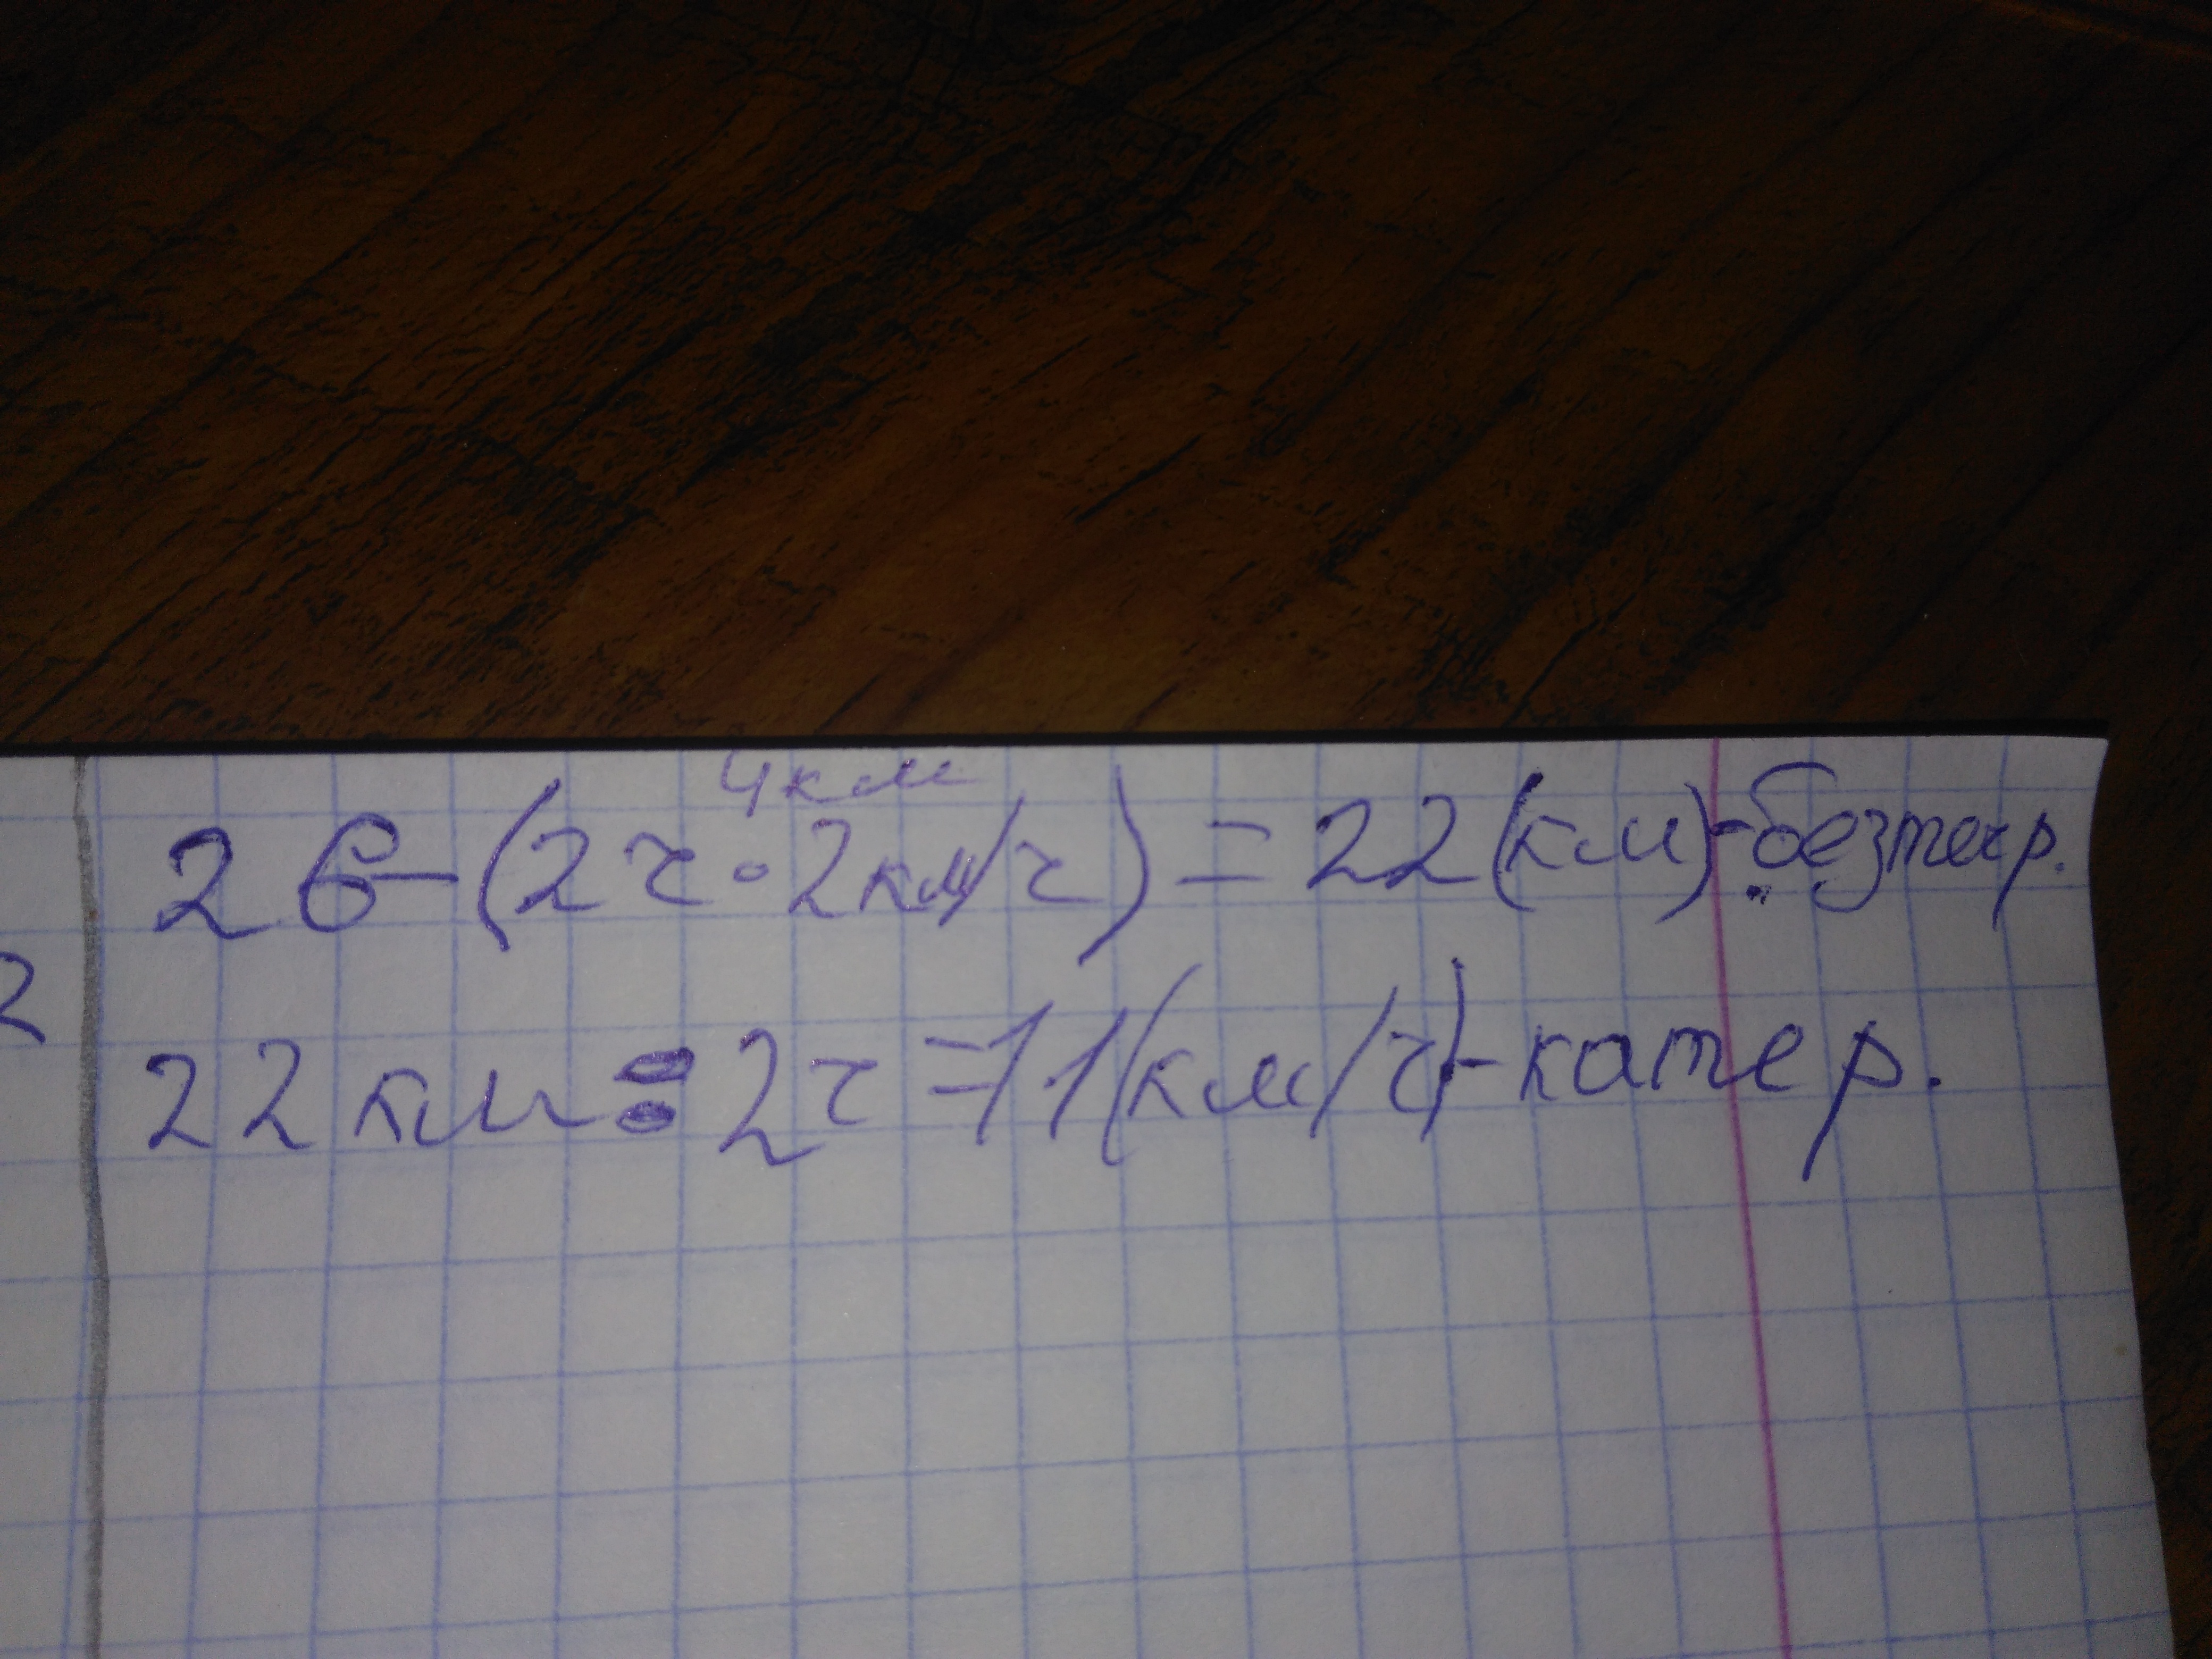 4км
26-(2ч·2км/ч)=22(км)-безтечр.
2
22км:2ч=11(км/ч)-катер.